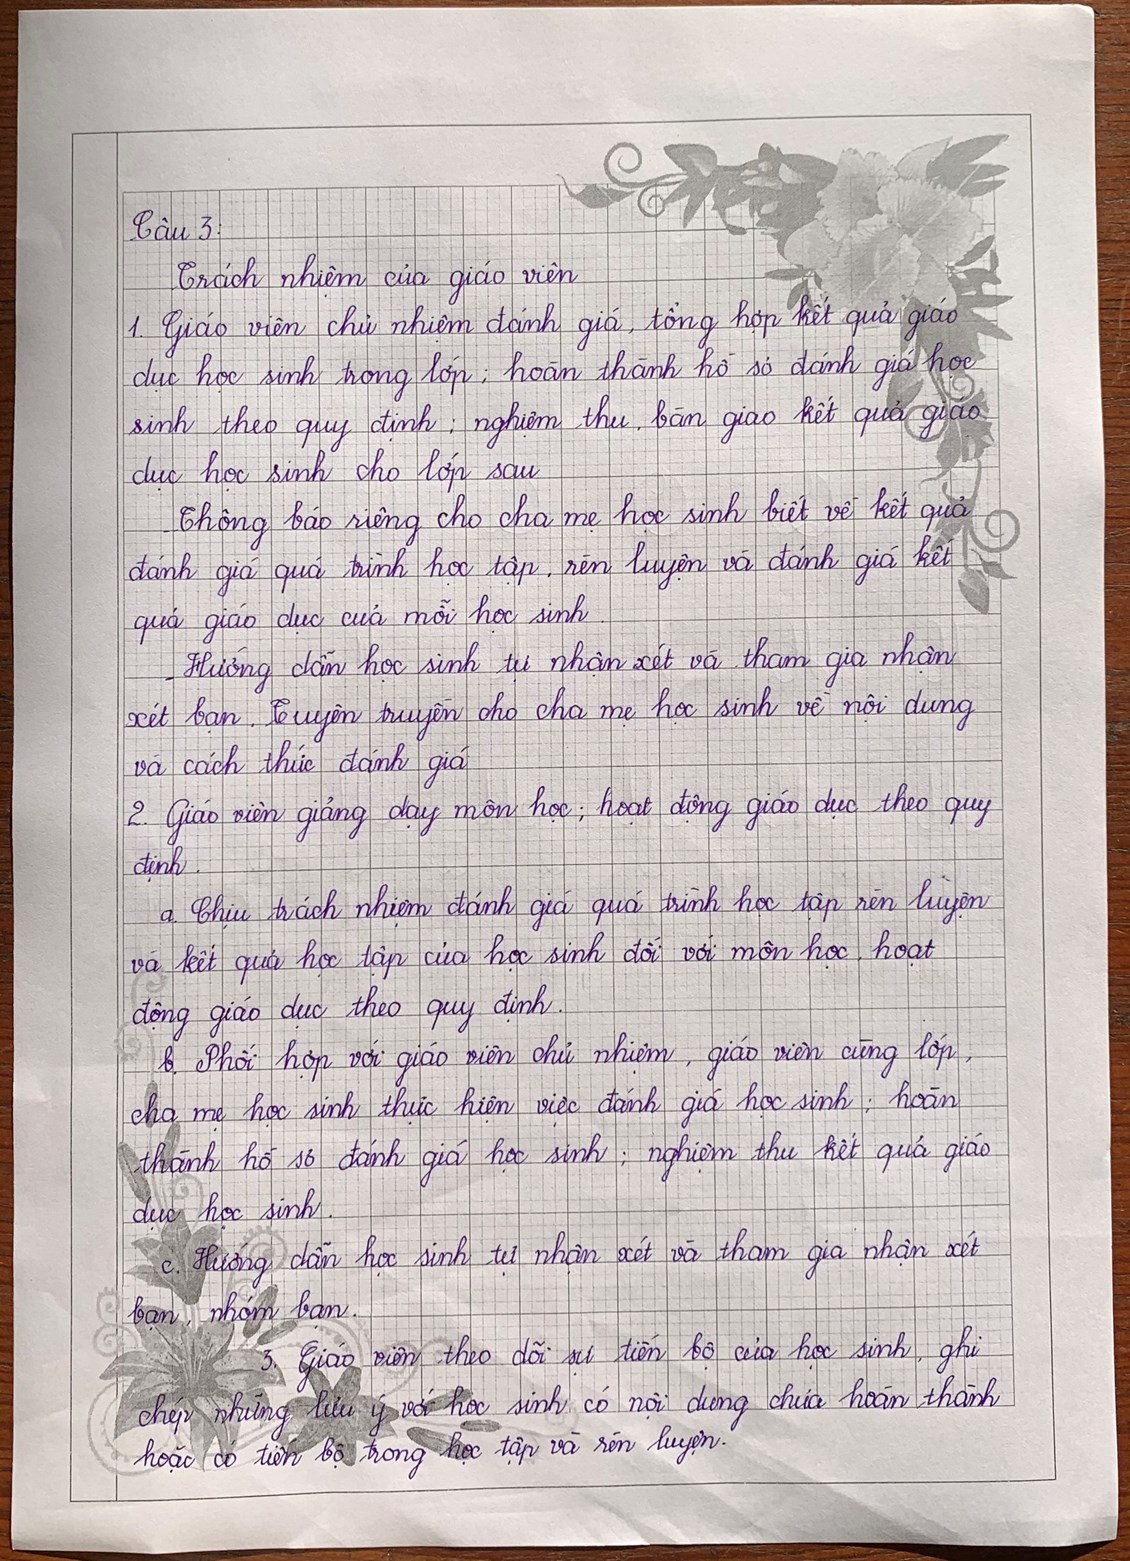 Câu 3:
Trách nhiệm của giáo viên
1. Giáo viên chủ nhiệm đánh giá, tổng hợp kết quả giáo
dục học sinh trong lớp; hoàn thành hồ sơ đánh giá học
sinh theo quy định; nghiệm thu, bàn giao kết quả giáo
dục học sinh cho lớp sau
- Thông báo riêng cho cha mẹ học sinh biết về kết quả
đánh giá quá trình học tập, rèn luyện và đánh giá kết
quả giáo dục của mỗi học sinh.
- Hướng dẫn học sinh tự nhận xét và tham gia nhận
xét bạn. Tuyên truyền cho cha mẹ học sinh về nội dung
và cách thức đánh giá
2. Giáo viên giảng dạy môn học; hoạt động giáo dục theo quy
định.
a. Chịu trách nhiệm đánh giá quá trình học tập rèn luyện
và kết quả học tập của học sinh đối với môn học, hoạt
động giáo dục theo quy định.
b. Phối hợp với giáo viên chủ nhiệm, giáo viên cùng lớp,
cha mẹ học sinh thực hiện việc đánh giá học sinh; hoàn
thành hồ sơ đánh giá học sinh; nghiệm thu kết quả giáo
dục học sinh.
c. Hướng dẫn học sinh tự nhận xét và tham gia nhận xét
bạn, nhóm bạn.
3. Giáo viên theo dõi sự tiến bộ của học sinh, ghi
chép những lưu ý với học sinh có nội dung chưa hoàn thành
hoặc có tiến bộ trong học tập và rèn luyện.